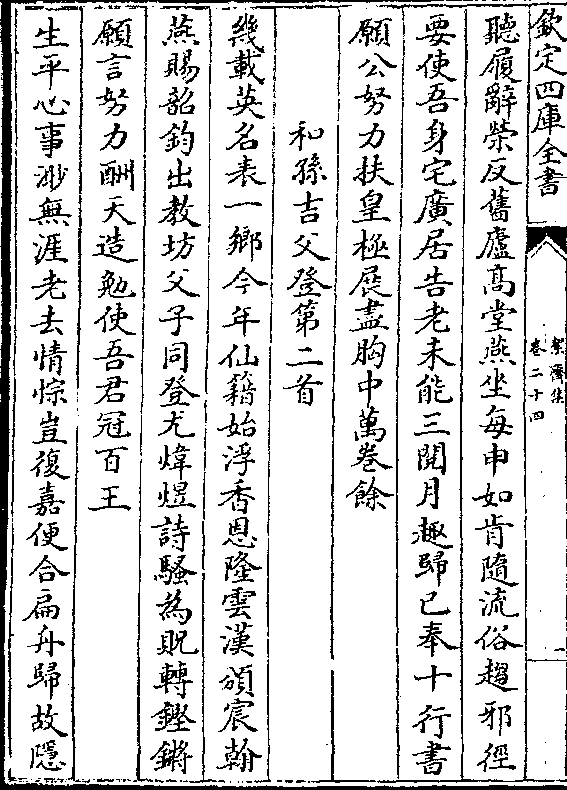 欽定四庫全書
絜齋集
卷二十四
一
聽履辭榮反舊廬髙堂燕坐每申如肯隨流俗趨邪徑
要使吾身宅廣居告老未能三閱月趣歸已奉十行書
願公努力扶皇極展盡胸中萬卷餘
和孫吉父登第二首
幾載英名表一鄉今年仙籍始浮香恩隆雲漢頒宸翰
燕賜韶鈞出教坊父子同登尤煒煜詩騷為貺轉鏗鏘
願言努力酬天造勉使吾君冠百王
生平心事渺無涯老去情悰豈復嘉便合扁舟歸故隱